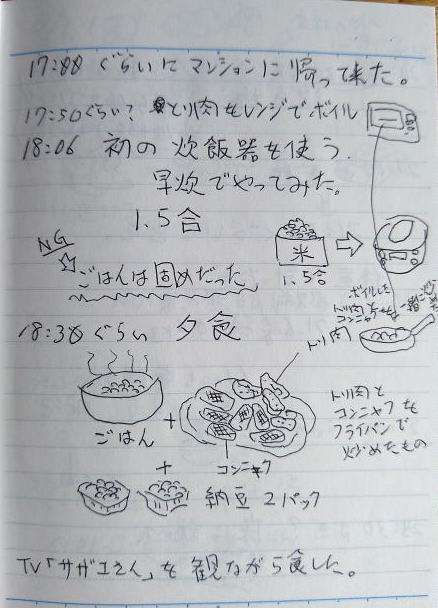 17:00 ぐらいに マンションに 帰って来た。
17:50ぐらい? とり肉をレンジでボイル
18:06 初の 炊飯器を使う.
早炊でやってみた。
1.5合
NG
米
1.5合
☆ごはんは固めだった。
ボイルした
トリ肉と
コンニャクを一緒に炒
18:30 ぐらい 夕食
トリ肉
ごはん
+
コンニャク
トリ肉と
コンニャクを
フライパンで
炒めたもの
+
納豆 2パック
TV「サザエさん」を 観ながら食した。